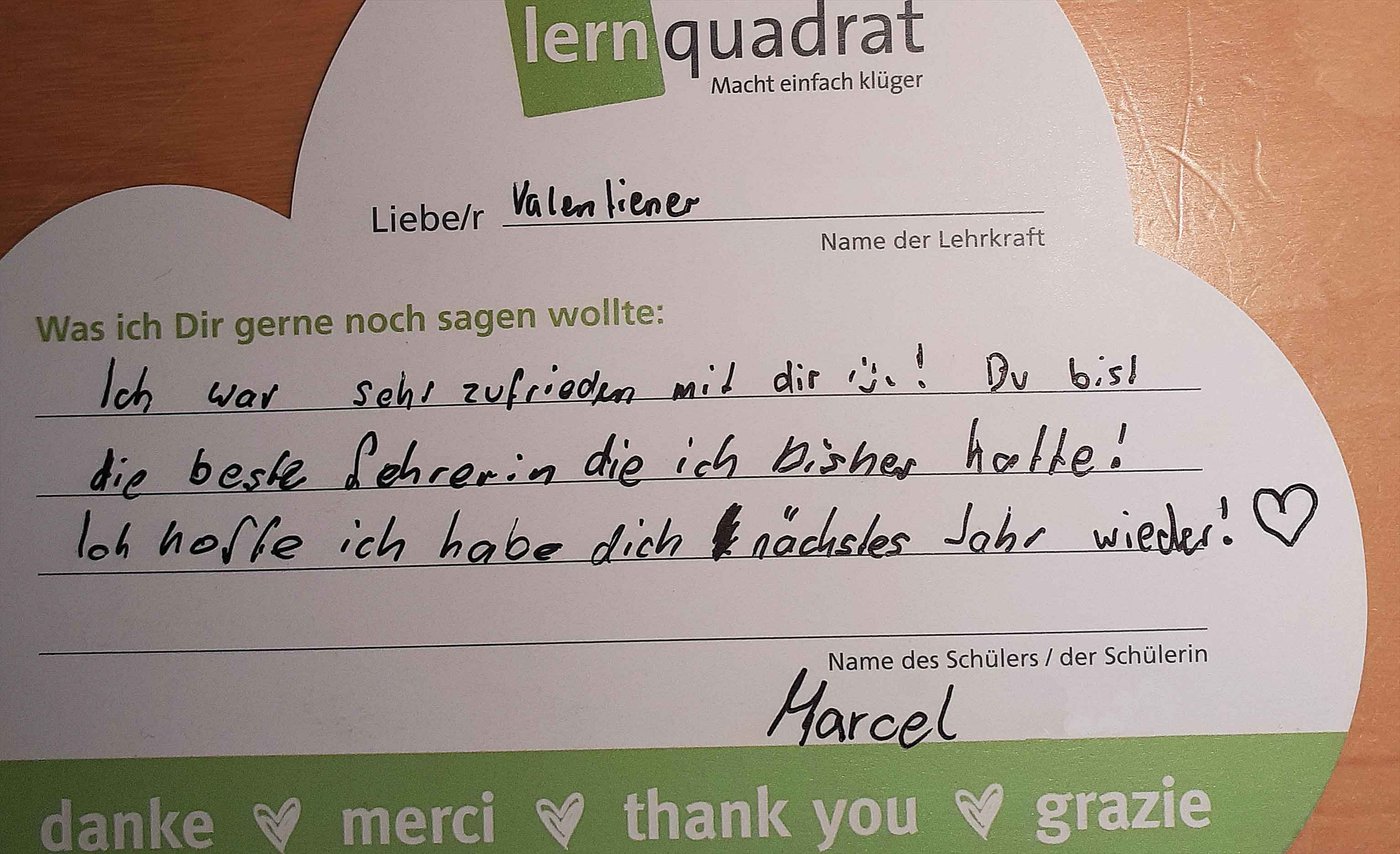 lernquadrat
Macht einfach klüger
Liebe/r Valentiener
Name der Lehrkraft
Was ich Dir gerne noch sagen wollte:
Ich war sehr zufrieden mit dir ! Du bist
die beste Lehrerin die ich bisher hatte!
Ich hoffe ich habe dich nächstes Jahr wieder! ♡
Name des Schülers / der Schülerin
Marcel
danke merci thank you grazie